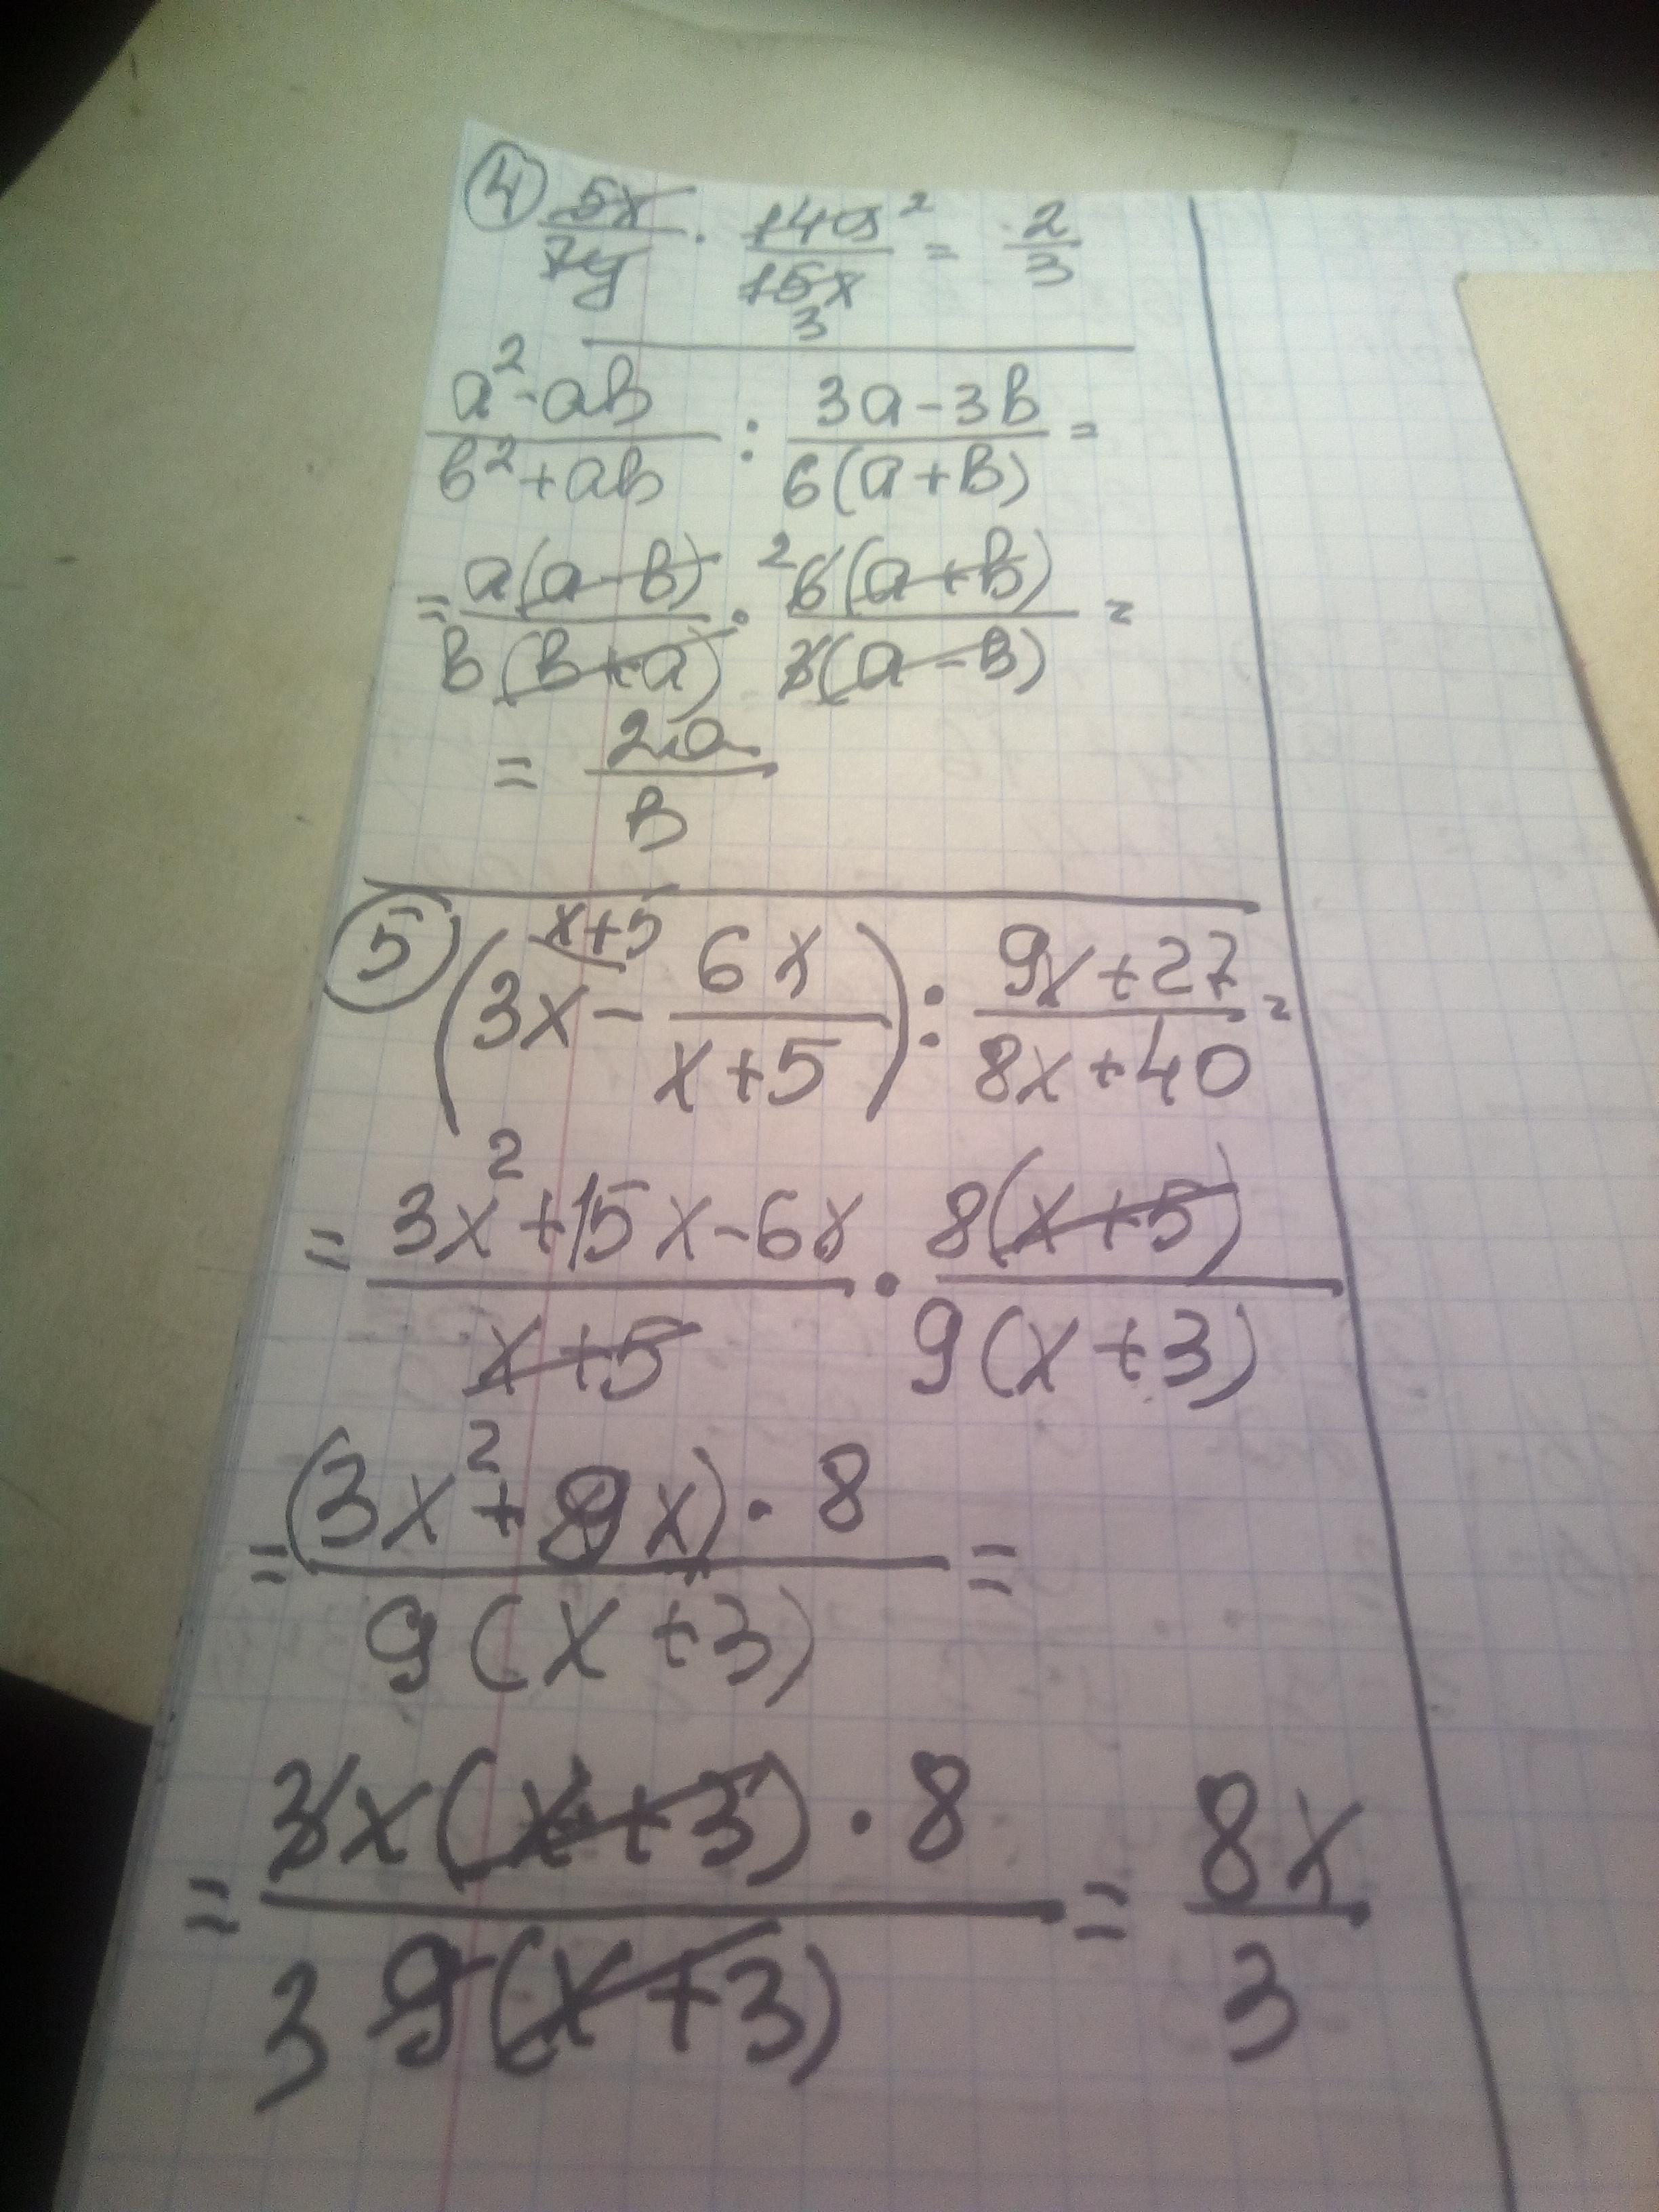 ④ 5x/7y · 14y²/15x = 2/3
3
a²-ab/b²+ab : 3a-3b/6(a+b) =
= a(a-b)/b(b+a) · ²6(a+b)/3(a-b) =
= 2a/b
⑤ (3x^(x+5) - 6x/x+5) : 9x+27/8x+40 =
= 3x²+15x-6x/x+5 · 8(x+5)/9(x+3)
= (3x²+9x)·8/9(x+3) =
= 3x(x+3)·8/3 9(x+3) = 8x/3